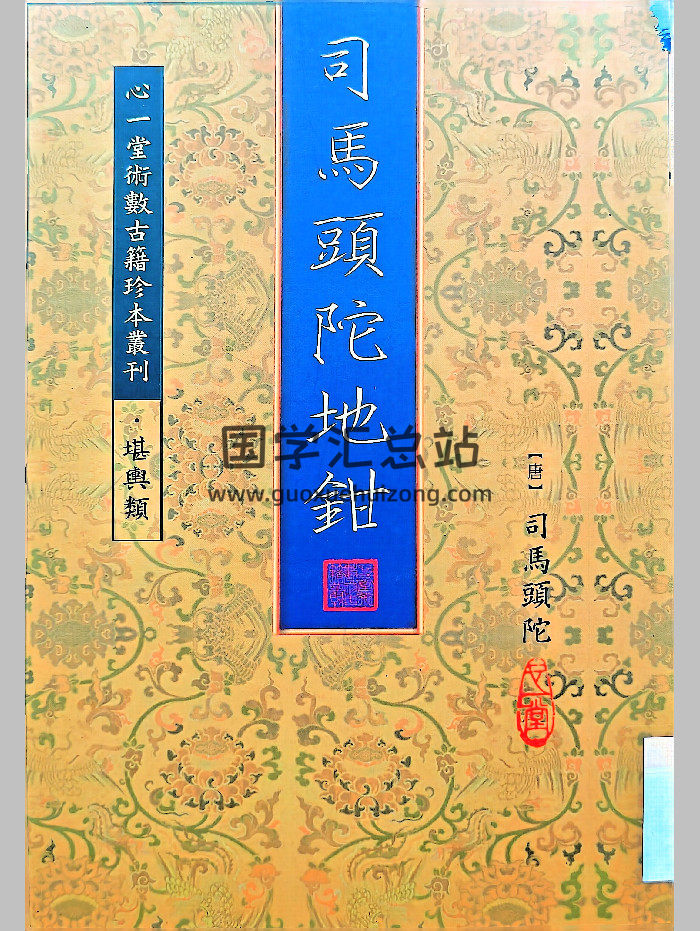 司馬頭陀地鉗
【唐】司馬頭陀
心一堂
心一堂術數古籍珍本叢刊
·堪輿類
国学汇总站
www.guoxuehuizong.com